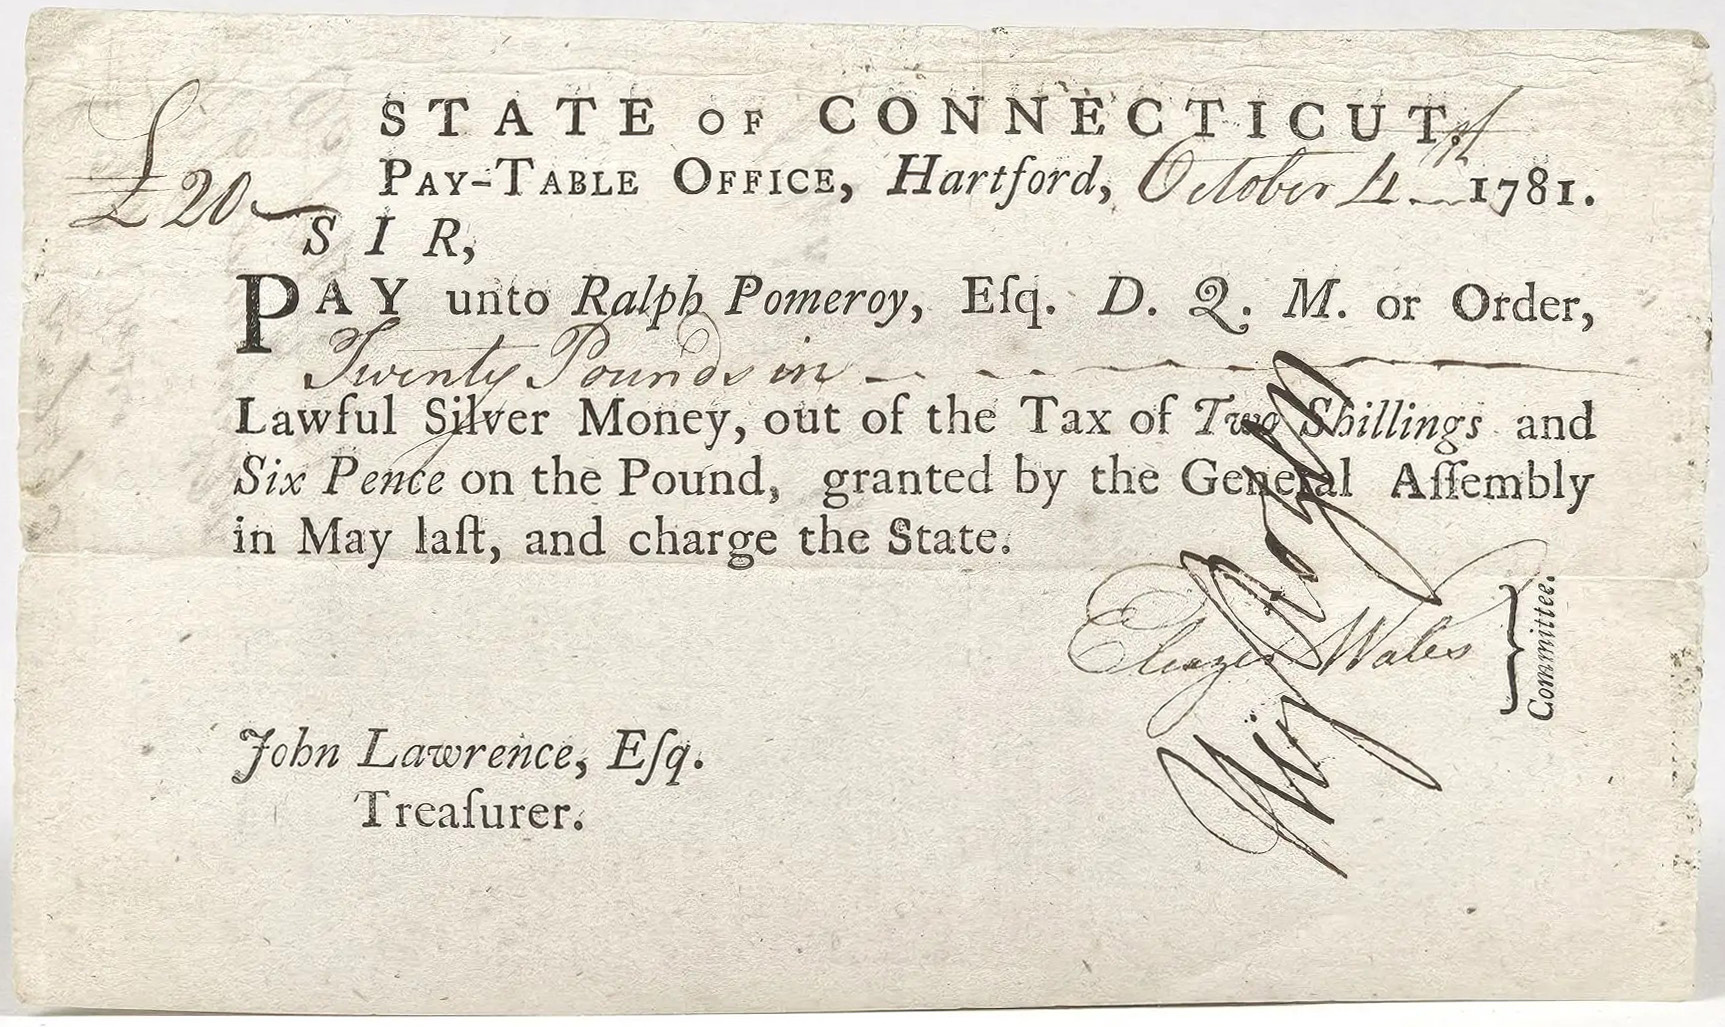 STATE OF CONNECTICUT.
PAY-TABLE OFFICE, Hartford, October 4th 1781.
£20
SIR,
PAY unto Ralph Pomeroy, Eſq. D. Q. M. or Order,
Twenty Pounds in
Lawful Silver Money, out of the Tax of Two Shillings and
Six Pence on the Pound, granted by the General Aſſembly
in May laſt, and charge the State.
Eleazer Wales
Committee.
John Lawrence, Eſq.
Treaſurer.